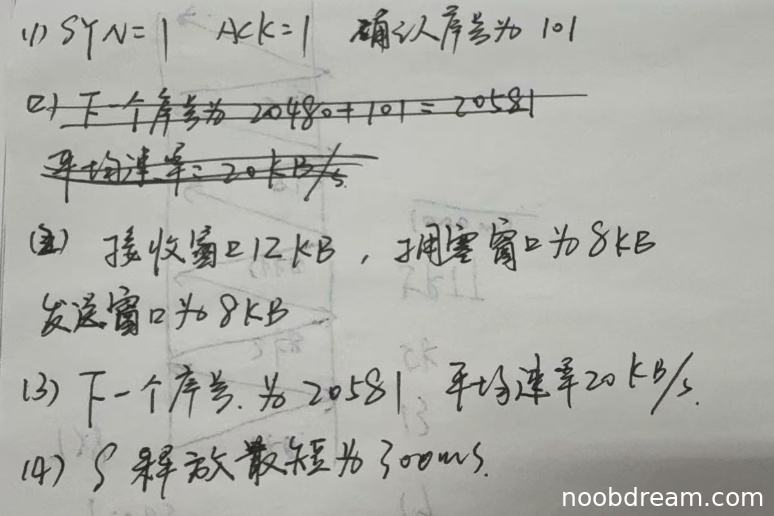 (1) SYN=1 ACK=1 确认序号为 101
(2) 下一个序号为 20480+101=20581
平均速率=20KB/s.
(2) 接收窗口12KB，拥塞窗口为8KB
发送窗口为8KB
(3) 下一个序号.为20581 平均速率20KB/s.
(4) S释放最短为300ms.
noobdream.com